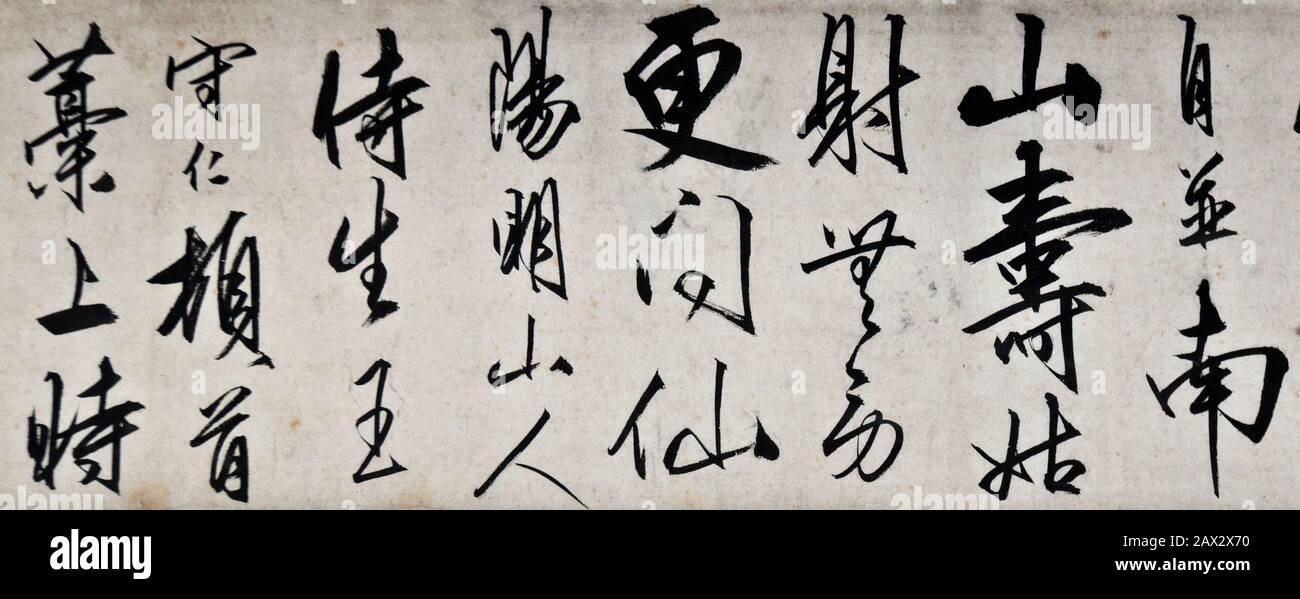 自並南
山壽姑
射無勞
更问仙
陽明山人
侍生王
守仁頓首
藁上時
alamy
Image ID: 2AX2X70
www.alamy.com